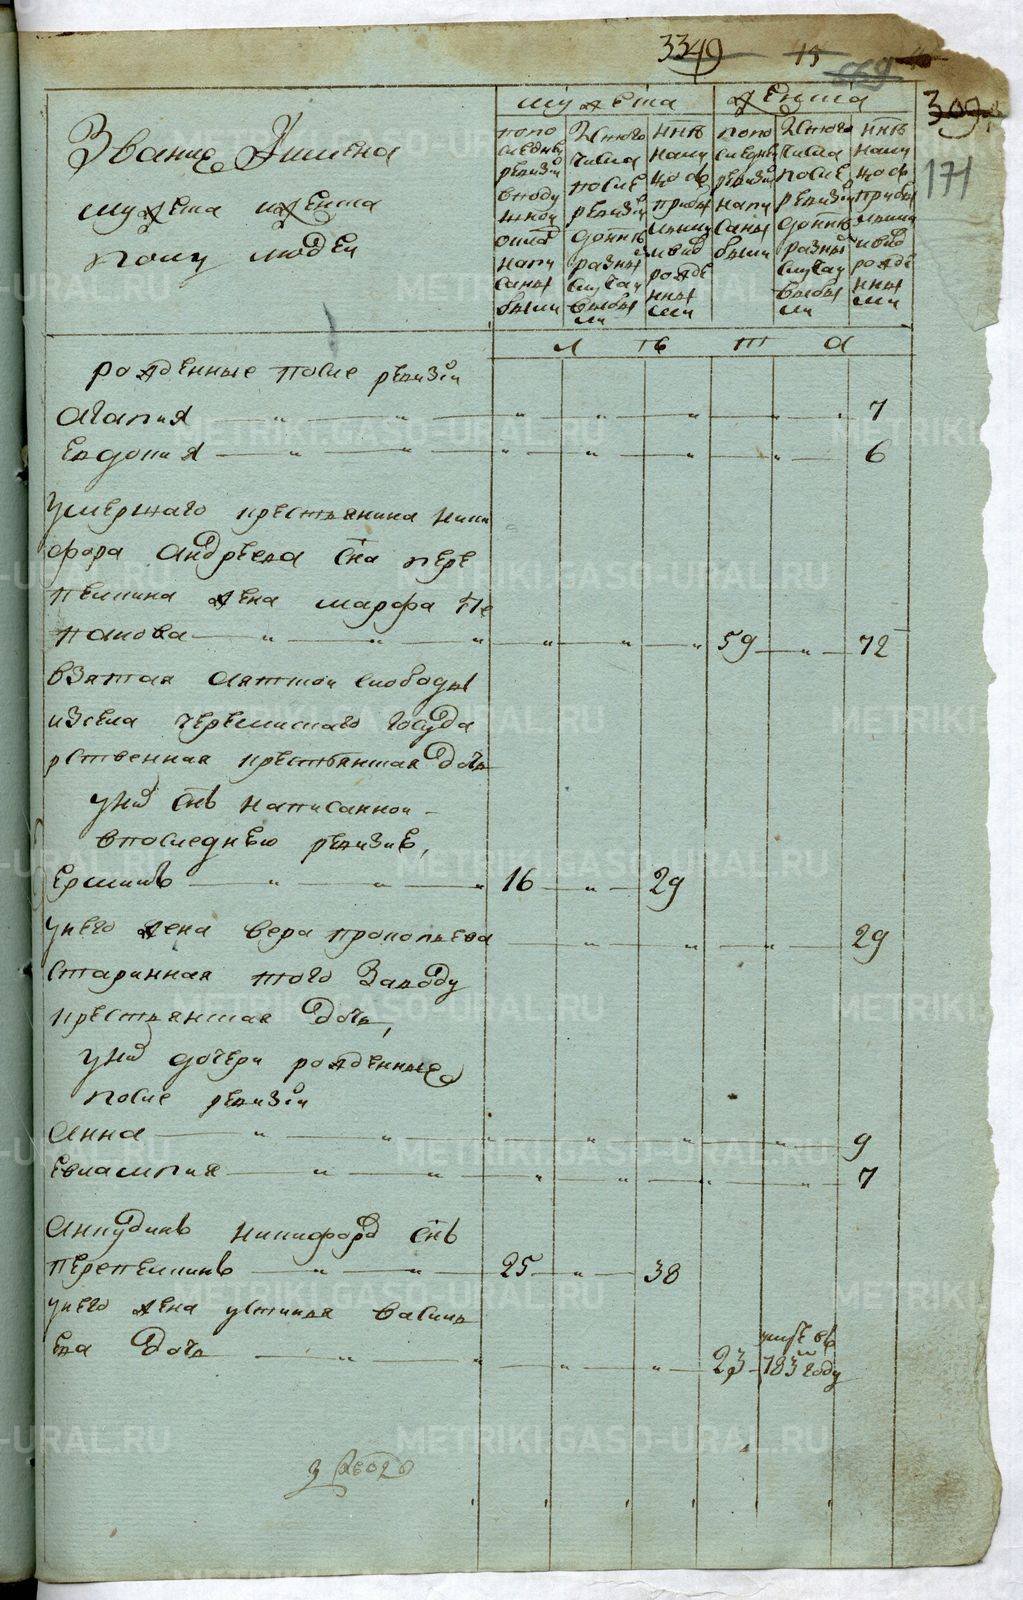 3349 15 669
309
171
Звание Имена
мужеска и женска
полу людей
мужеска
женска
попо
следне
ревизіи
в году
оклад
напи
саны
были
Из того
числа
после
ревизіи
до ннѣ
разны
случаи
выбы
ли
ннѣ
на лицо
съ
прибы
лыми
и вно
рожде
нны
ми
попо
следне
ревизіи
напи
саны
были
Из того
числа
после
ревизіи
до ннѣ
разны
случаи
выбы
ли
ннѣ
на лицо
съ
прибы
лыми
и вно
рожде
нны
ми
л ѣ т а
рожденные после ревизіи
агапия 7
Евдокия 6
умершаго крестьянина ники
фора андреева сна пере
пелкина жена марфа По
тапова 59 72
взятая аятской слободы
из села черемисскаго госуда
рственная крестьянская дочь
у них снъ написанной
в последнею ревизию,
Ермилъ 16 29
у него жена вера прокопьева 29
старинная того заводу
крестьянская дочь,
у них дочери рожденные
после ревизіи
анна 9
Евлампия 7
анкудинъ никифоров снъ
перепелкинъ 25 38
у него жена устинья василь
ева дочь 23 умре въ
783м году